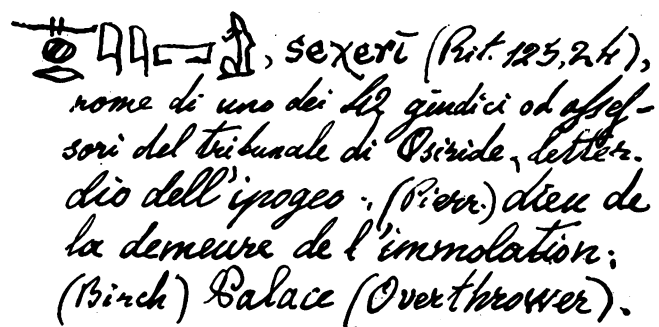 , seχerī (Rit. 125, 24),
nome di uno dei 42 giudici od asses-
sori del tribunale di Osiride, letter.
dio dell'ipogeo. (Pierr.) dieu de
la demeure de l'immolation;
(Birch) Palace (Overthrower).